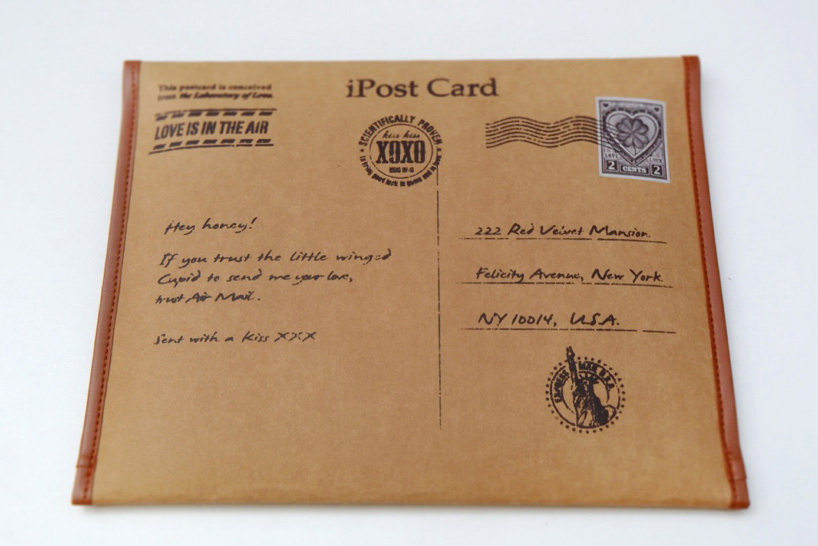 iPost Card
This postcard is conceived
from the Laboratory of Love.
LOVE IS IN THE AIR
SCIENTIFICALLY PROVEN
kiss kiss
XOXO
LOVE LOVE
2 CENTS 2
Hey honey!
If you trust the little winged
Cupid to send me your love,
trust Air Mail.
Sent with a kiss XXX
222 Red Velvet Mansion
Felicity Avenue, New York.
NY 10014, USA.